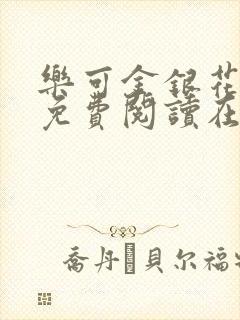 樂可金銀花
免費閱讀在
喬丹·貝尔福